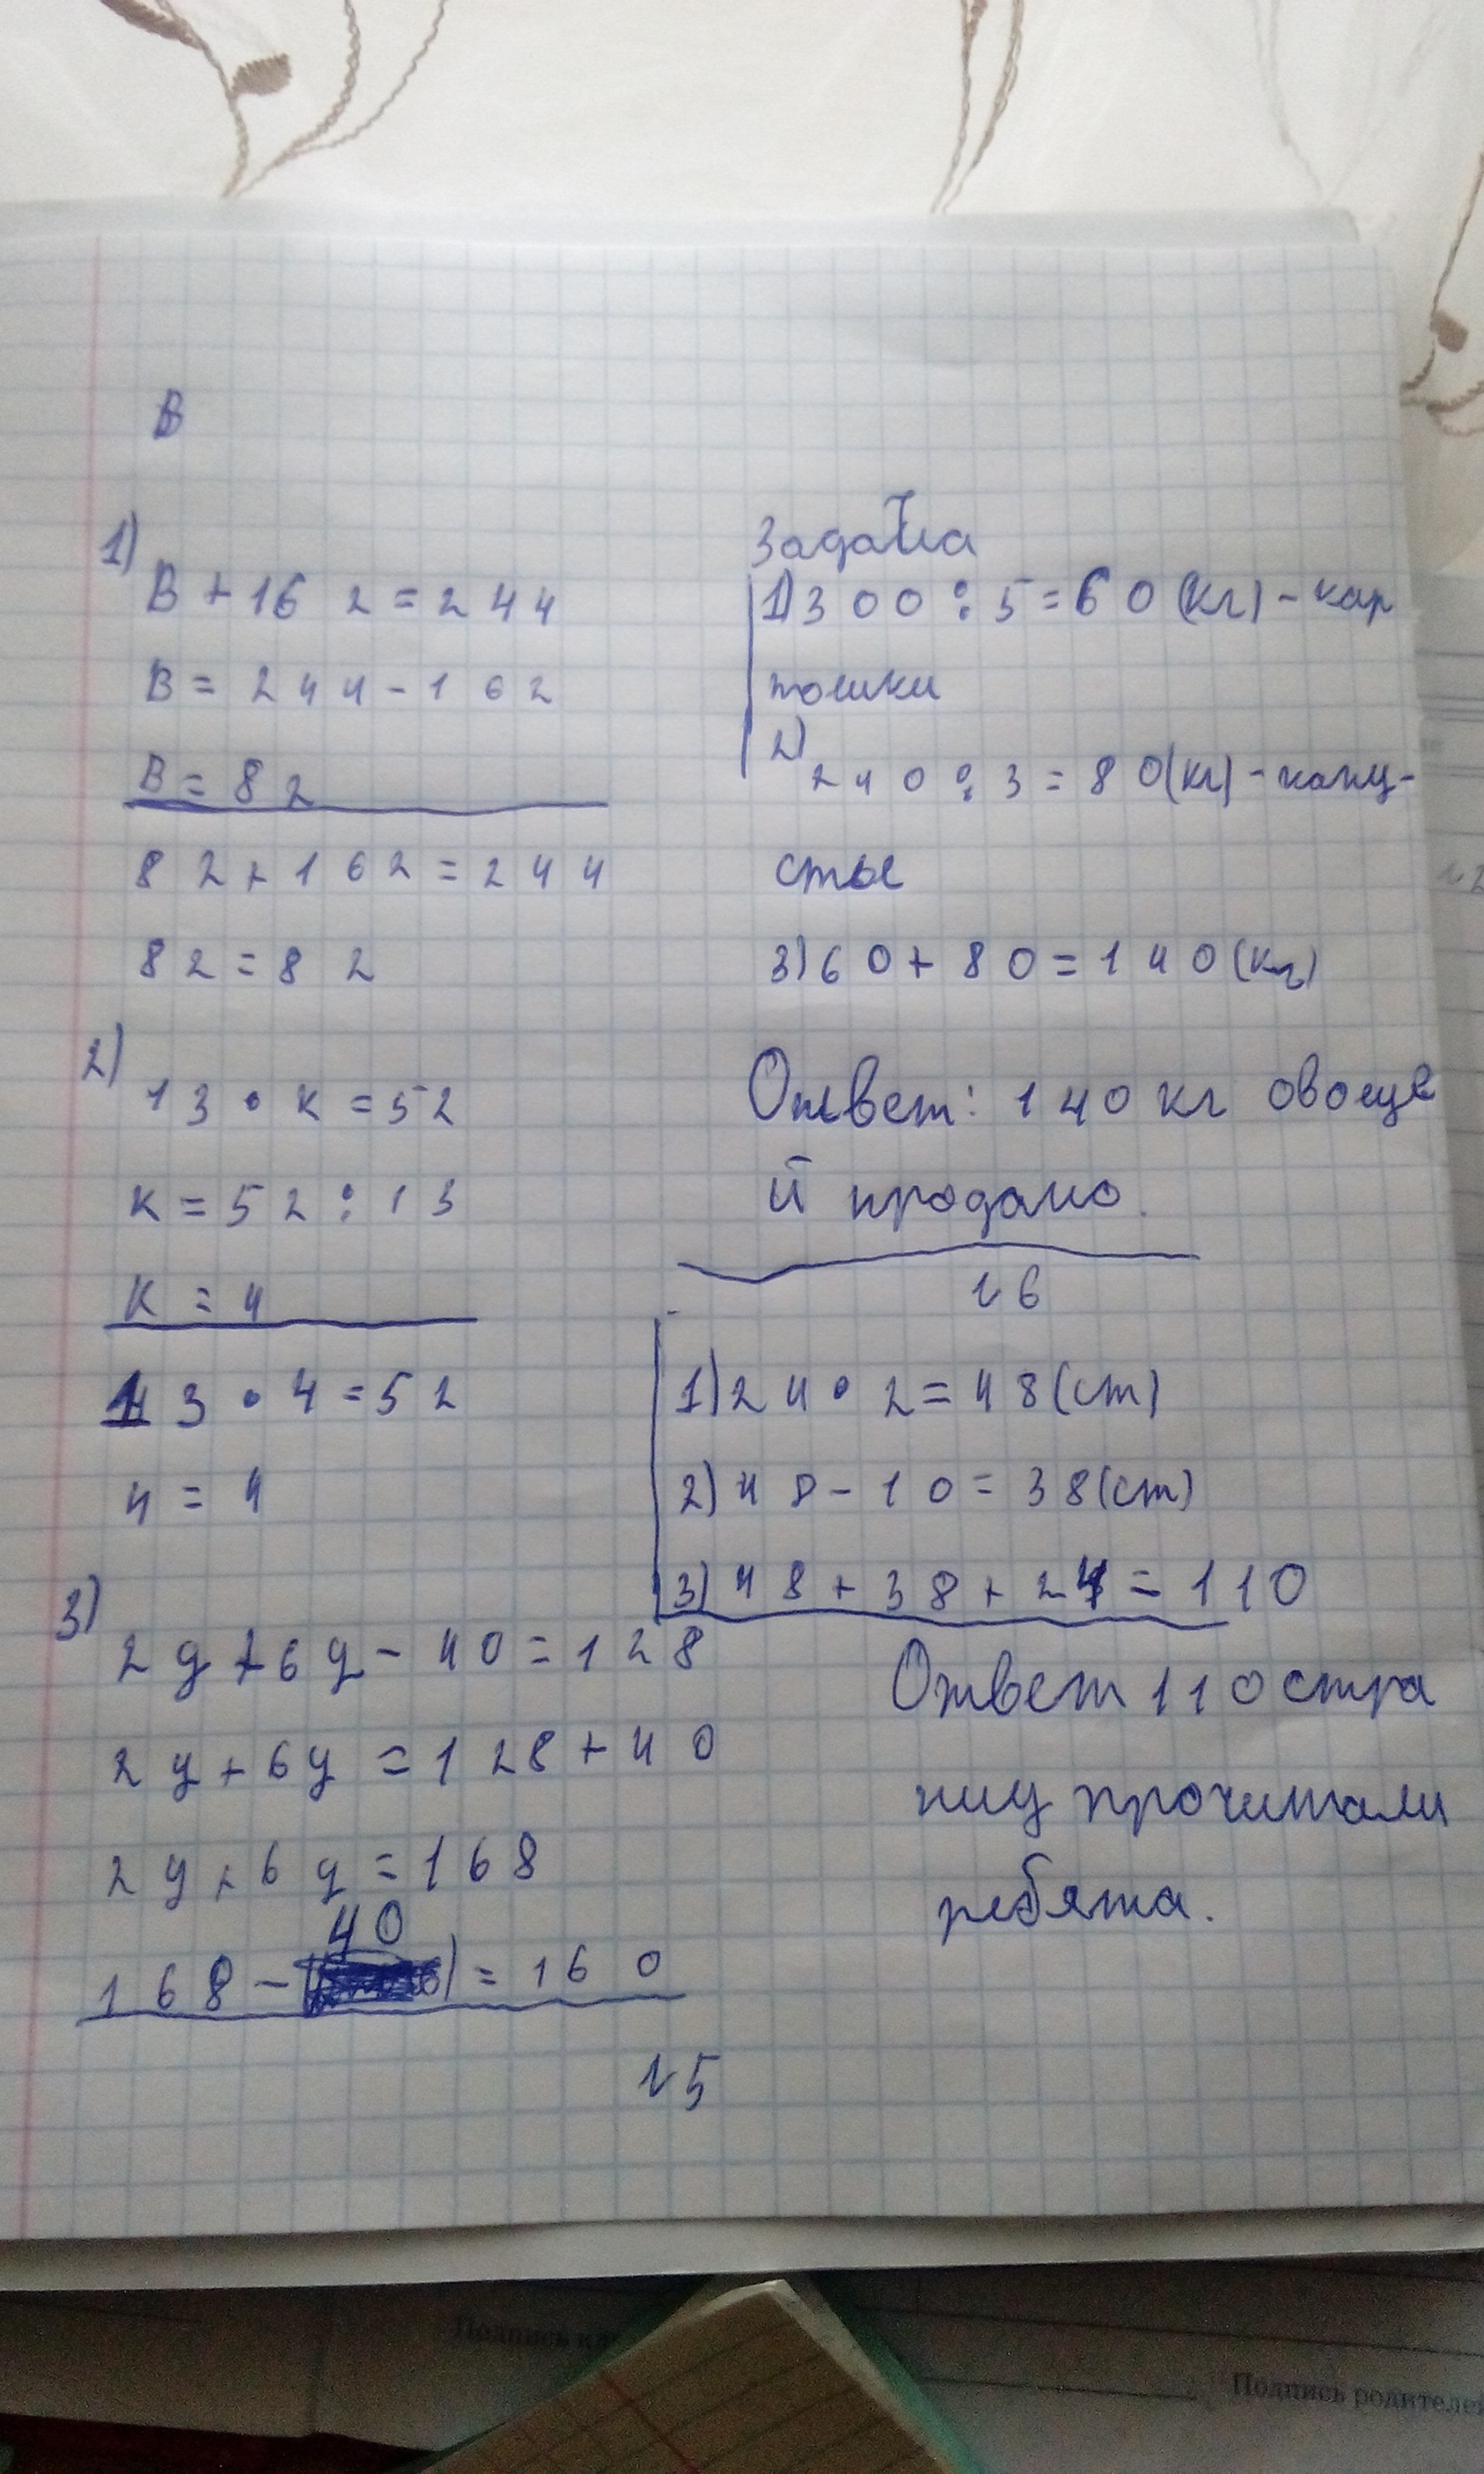 В
1)
В + 162 = 244
В = 244 - 162
В = 82
82 + 162 = 244
82 = 82
2)
13 • К = 52
К = 52 : 13
К = 4
13 • 4 = 52
4 = 4
3)
2у + 6у - 40 = 128
2у + 6у = 128 + 40
2у + 6у = 168
40
168 - ) = 160
√5
Задача
1) 300 : 5 = 60 (кг) - кар
тошки
2)
240 : 3 = 80 (кг) - капу-
сты
3) 60 + 80 = 140 (кг)
Ответ: 140 кг овоще
й продано.
√6
1) 24 • 2 = 48 (ст)
2) 48 - 10 = 38 (ст)
3) 48 + 38 + 24 = 110
Ответ 110 стра
ниц прочитали
ребята.
Подпись
Подпись родителей